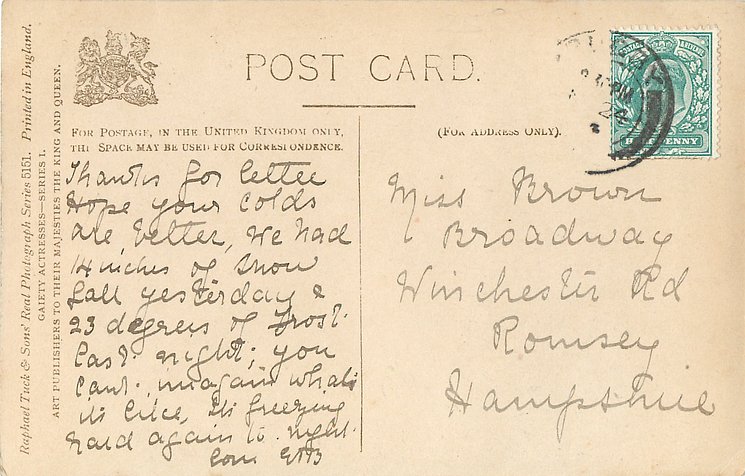 POST CARD.
FOR POSTAGE, IN THE UNITED KINGDOM ONLY,
THIS SPACE MAY BE USED FOR CORRESPONDENCE.
(FOR ADDRESS ONLY).
Raphael Tuck & Sons' Real Photograph Series 5151. Printed in England.
GAIETY ACTRESSES—SERIES I.
ART PUBLISHERS TO THEIR MAJESTIES THE KING AND QUEEN.
POSTAGE & REVENUE
HALFPENNY
Thanks for letter
Hope your colds
are better, We had
14 inches of snow
fall yesterday &
23 degrees of frost
last night; you
cant imagain whats
its like, Its freezing
hard again to night.
Miss Brown
1 Broadway
Winchester Rd
Romsey
Hampshire